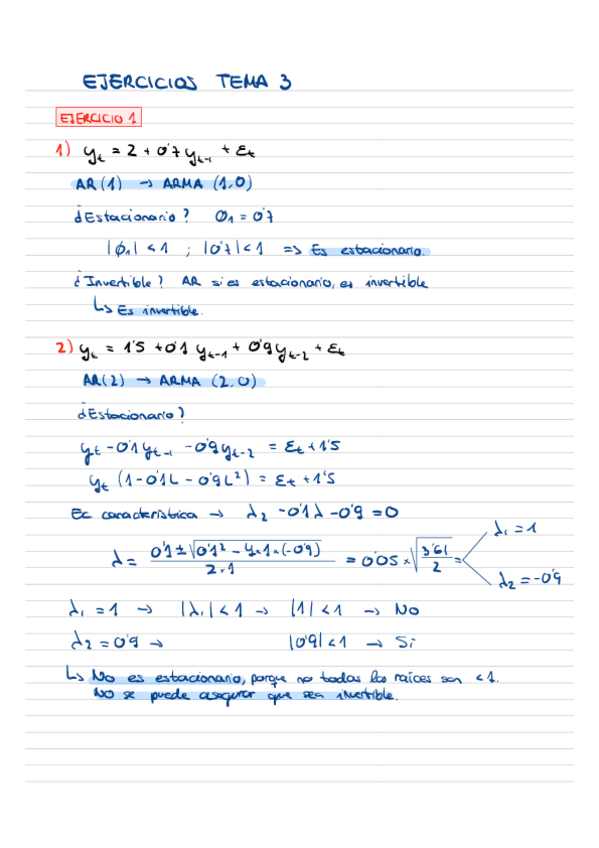 EJERCICIOS TEMA 3
EJERCICIO 1
1) yₜ = 2 + 0'7 yₜ₋₁ + Ɛₜ
AR(1) → ARMA (1,0)
¿Estacionario? Ø₁ = 0'7
|ϕ₁| < 1 ; |0'7| < 1 => Es estacionario.
¿Invertible? AR si es estacionario, es invertible
↳ Es invertible.
2) yₜ = 1'5 + 0'1 yₜ₋₁ + 0'9 yₜ₋₂ + Ɛₜ
AR(2) → ARMA (2,0)
¿Estacionario?
yₜ - 0'1 yₜ₋₁ - 0'9 yₜ₋₂ = Ɛₜ + 1'5
yₜ (1 - 0'1L - 0'9L²) = Ɛₜ + 1'5
Ec característica → λ₂ - 0'1λ - 0'9 = 0
λ = (0'1 ± √(0'1² - 4×1×(-0'9))) / (2×1) = 0'05 × √(3'61/2) = λ₁ = 1
λ₂ = -0'9
λ₁ = 1 → |λ₁| < 1 → |1| < 1 → No
λ₂ = 0'9 → |0'9| < 1 → Si
↳ No es estacionario, porque no todas las raíces son < 1.
No se puede asegurar que sea invertible.